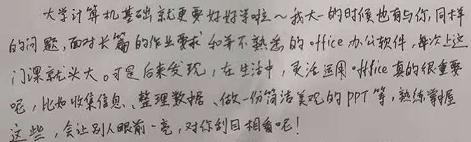 大学计算机基础就更要好好学啦～我大一的时候也有与你同样
的问题，面对长篇的作业要求和并不熟悉的office办公软件，每次上这
门课就头大。可是后来发现，在生活中，灵活运用office真的很重要
呢，比如收集信息、整理数据、做一份简洁美观的PPT等，熟练掌握
这些，会让别人眼前一亮，对你刮目相看呢！